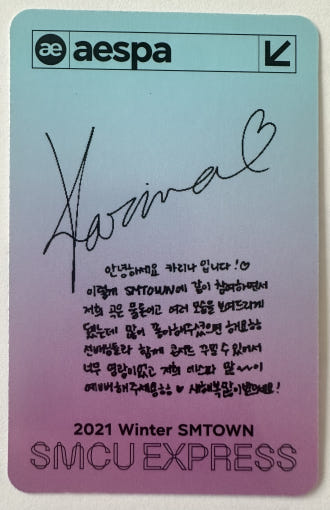 ae aespa
Karina
안녕하세요 카리나 입니다!♡
이렇게 SMTOWN에 같이 참여하면서
저희 곡은 물론이고 여러 모습을 보여드리게
됐는데 많이 좋아해주셨으면 해요ㅎㅎ
선배님들과 함께 콘서트 꾸밀 수 있어서
너무 영광이었고 저희 에스파 많~~이
예뻐해주세요ㅎㅎ ♥ 새해복많이받으세요!
2021 Winter SMTOWN
SMCU EXPRESS